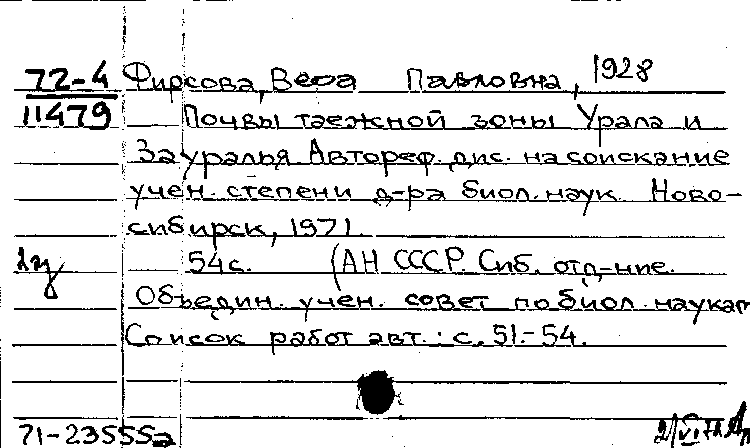 72-4 Фирсова, Вера Павловна, 1928
11479 Почвы таежной зоны Урала и
Зауралья. Автореф. дис. на соискание
учен. степени д-ра биол. наук. Ново-
сибирск, 1971.
54 с. (АН СССР. Сиб. отд-ние.
Объедин. учен. совет по биол. наукам
Список работ авт.: с. 51-54.
71-23555а